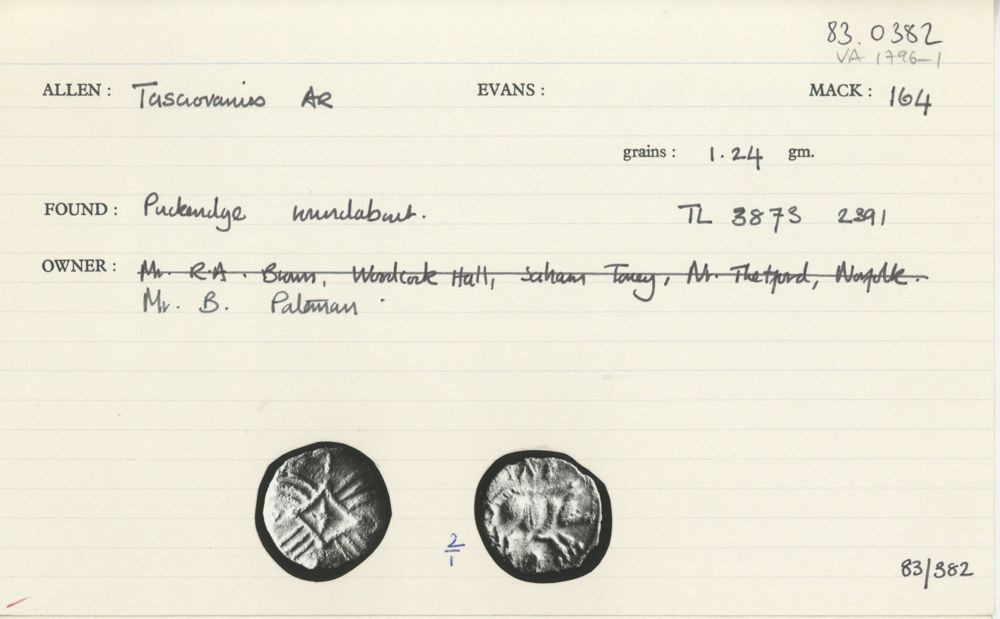 83.0382
VA 1796-1
ALLEN: Tasciovanus AR EVANS: MACK: 164
grains: 1.24 gm.
FOUND: Puckeridge roundabout. TL 3873 2391
OWNER: Mr. R.A. Brown, Woodcock Hall, Saham Toney, Nr. Thetford, Norfolk.
Mr. B. Pateman
2/1
83/382